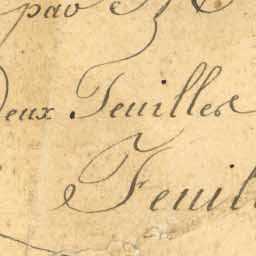 par
Deux Feuilles
Feuil